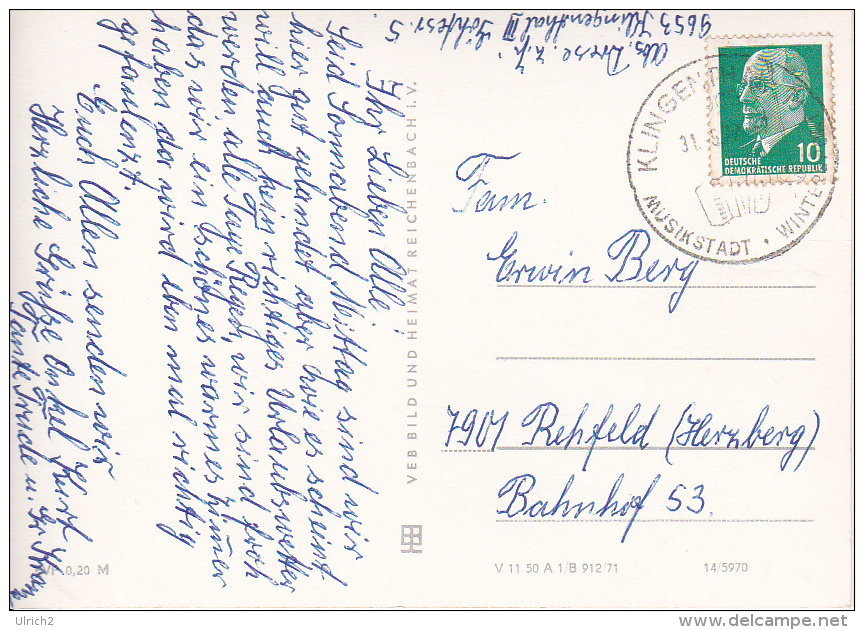 Ihr Lieben Alle!
Seid Sonnabend Mittag sind wir
hier gut gelandet aber wie es scheint
will auch kein richtiges Urlaubswetter
werden alle Tage Regen, wir sind froh
das wir ein schönes warmes Zimmer
haben da wird eben mal richtig
gefaulenzt.
Euch Allen senden wir
Herzliche Grüße Onkel Kurt
Tante Trude u.
EVP 0,20 M
VEB BILD UND HEIMAT REICHENBACH I.V.
Abs. z.Z.
9653 Klingenthal III
5
KLINGENTHAL
31.
MUSIKSTADT · WINTER
DEUTSCHE
DEMOKRATISCHE REPUBLIK
10
Fam.
Erwin Berg
7901 Rehfeld (Herzberg)
Bahnhof 53.
V 11 50 A 1/B 912/71
14/5970
Ulrich2
www.delcampe.net